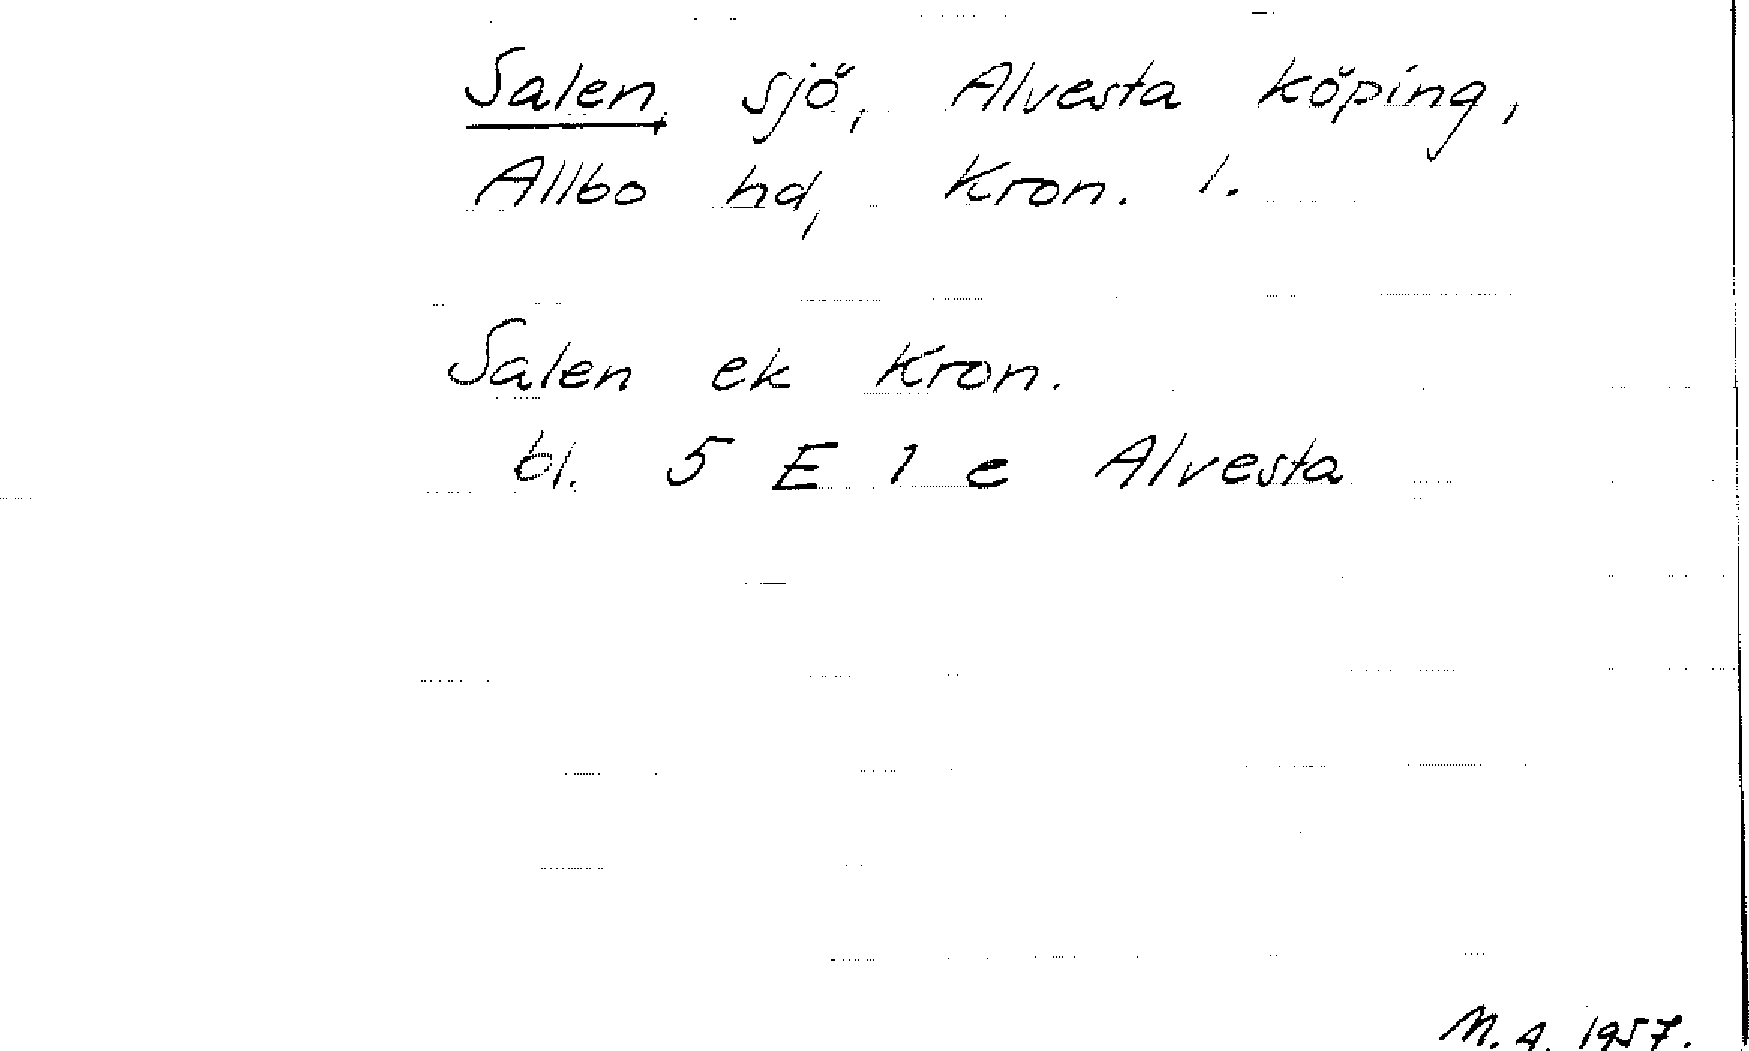 Salen, sjö, Alvesta köping,
Allbo hd, Kron. l.
Salen ek Kron.
bl. 5 E 1 e Alvesta
M. A. 1957.